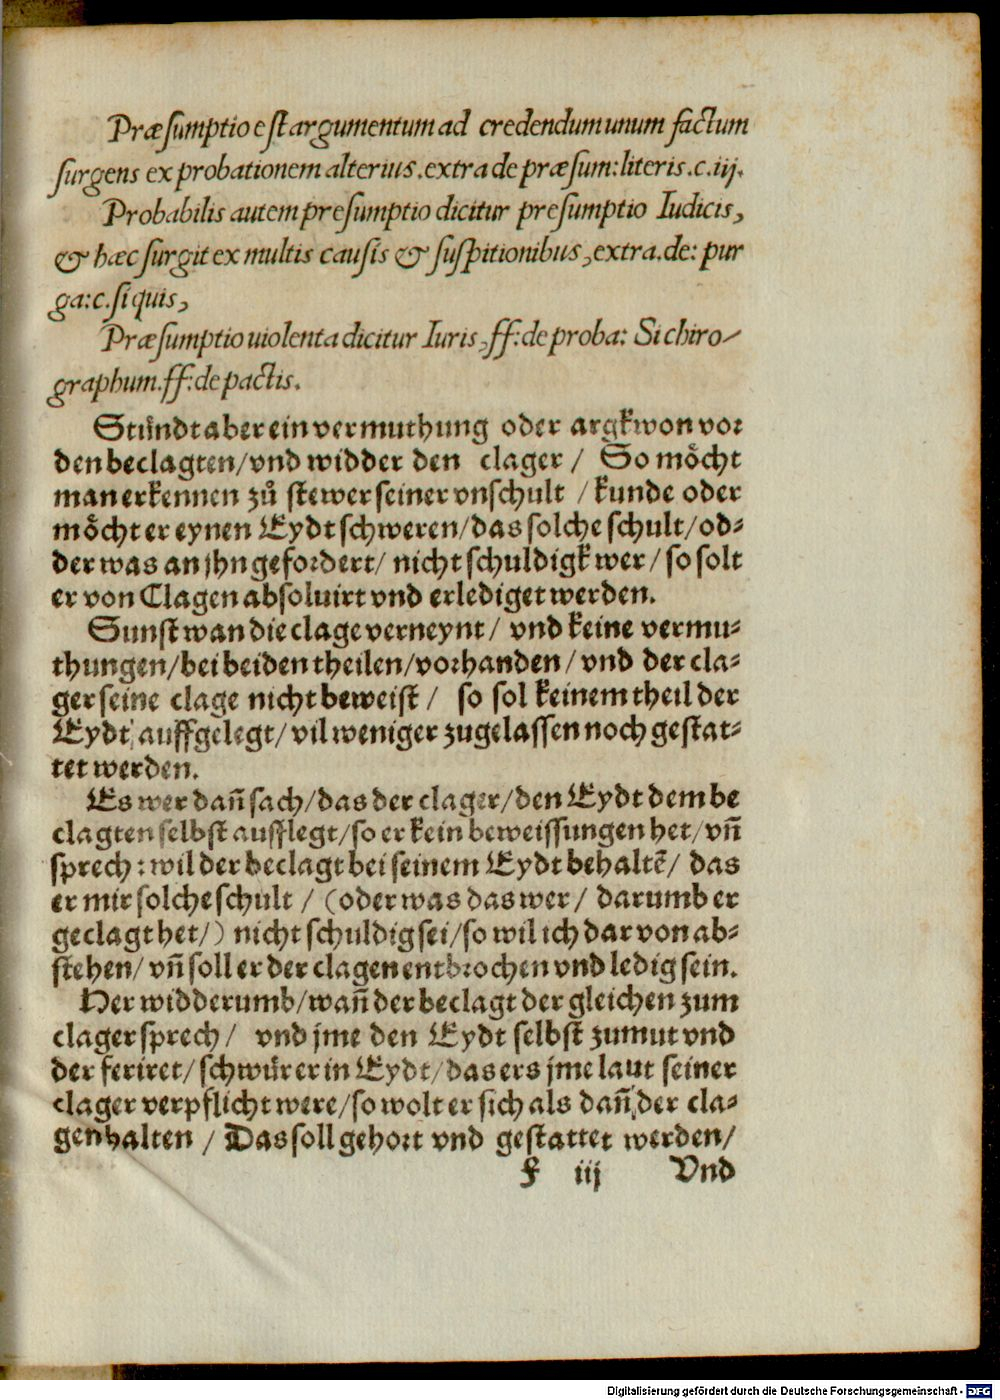 Præsumptio est argumentum ad credendum unum factum
surgens ex probationem alterius. extra de præsum: literis. c. iij.
Probabilis autem presumptio dicitur presumptio Iudicis,
& hæc surgit ex multis causis & suspitionibus, extra. de: pur
ga: c. si quis,
Præsumptio uiolenta dicitur Iuris, ff: de proba: Si chiro-
graphum. ff: de pactis.
Stůndt aber ein vermuthung oder argkwon vor
den beclagten/ vnd widder den clager / So moͤcht
man erkennen zů stewer seiner vnschult / kunde oder
moͤcht er eynen Eydt schweren/ das solche schult/ od-
der was an jhn gefordert/ nicht schuldigk wer/ so solt
er von Clagen absoluirt vnd erlediget werden.
Sunst wan die clage verneynt/ vnd keine vermu-
thungen/ bei beiden theilen/ vorhanden/ vnd der cla-
ger seine clage nicht beweist / so sol keinem theil der
Eydt auffgelegt/ vil weniger zugelassen noch gestat-
tet werden.
Es wer dañ sach/ das der clager/ den Eydt dem be
clagten selbst aufflegt/ so er kein beweissungen het/ vñ
sprech: wil der beclagt bei seinem Eydt behaltẽ/ das
er mir solche schult / (oder was das wer/ darumb er
geclagt het/) nicht schuldig sei/ so wil ich dar von ab-
stehen/ vñ soll er der clagen entbrochen vnd ledig sein.
Her widderumb/ wañ der beclagt der gleichen zum
clager sprech/ vnd jme den Eydt selbst zumut vnd
der feriret/ schwůr er in Eydt/ das ers jme laut seiner
clager verpflicht were/ so wolt er sich als dañ der cla-
gen halten / Das soll gehort vnd gestattet werden/
f iij Vnd
Digitalisierung gefördert durch die Deutsche Forschungsgemeinschaft - DFG